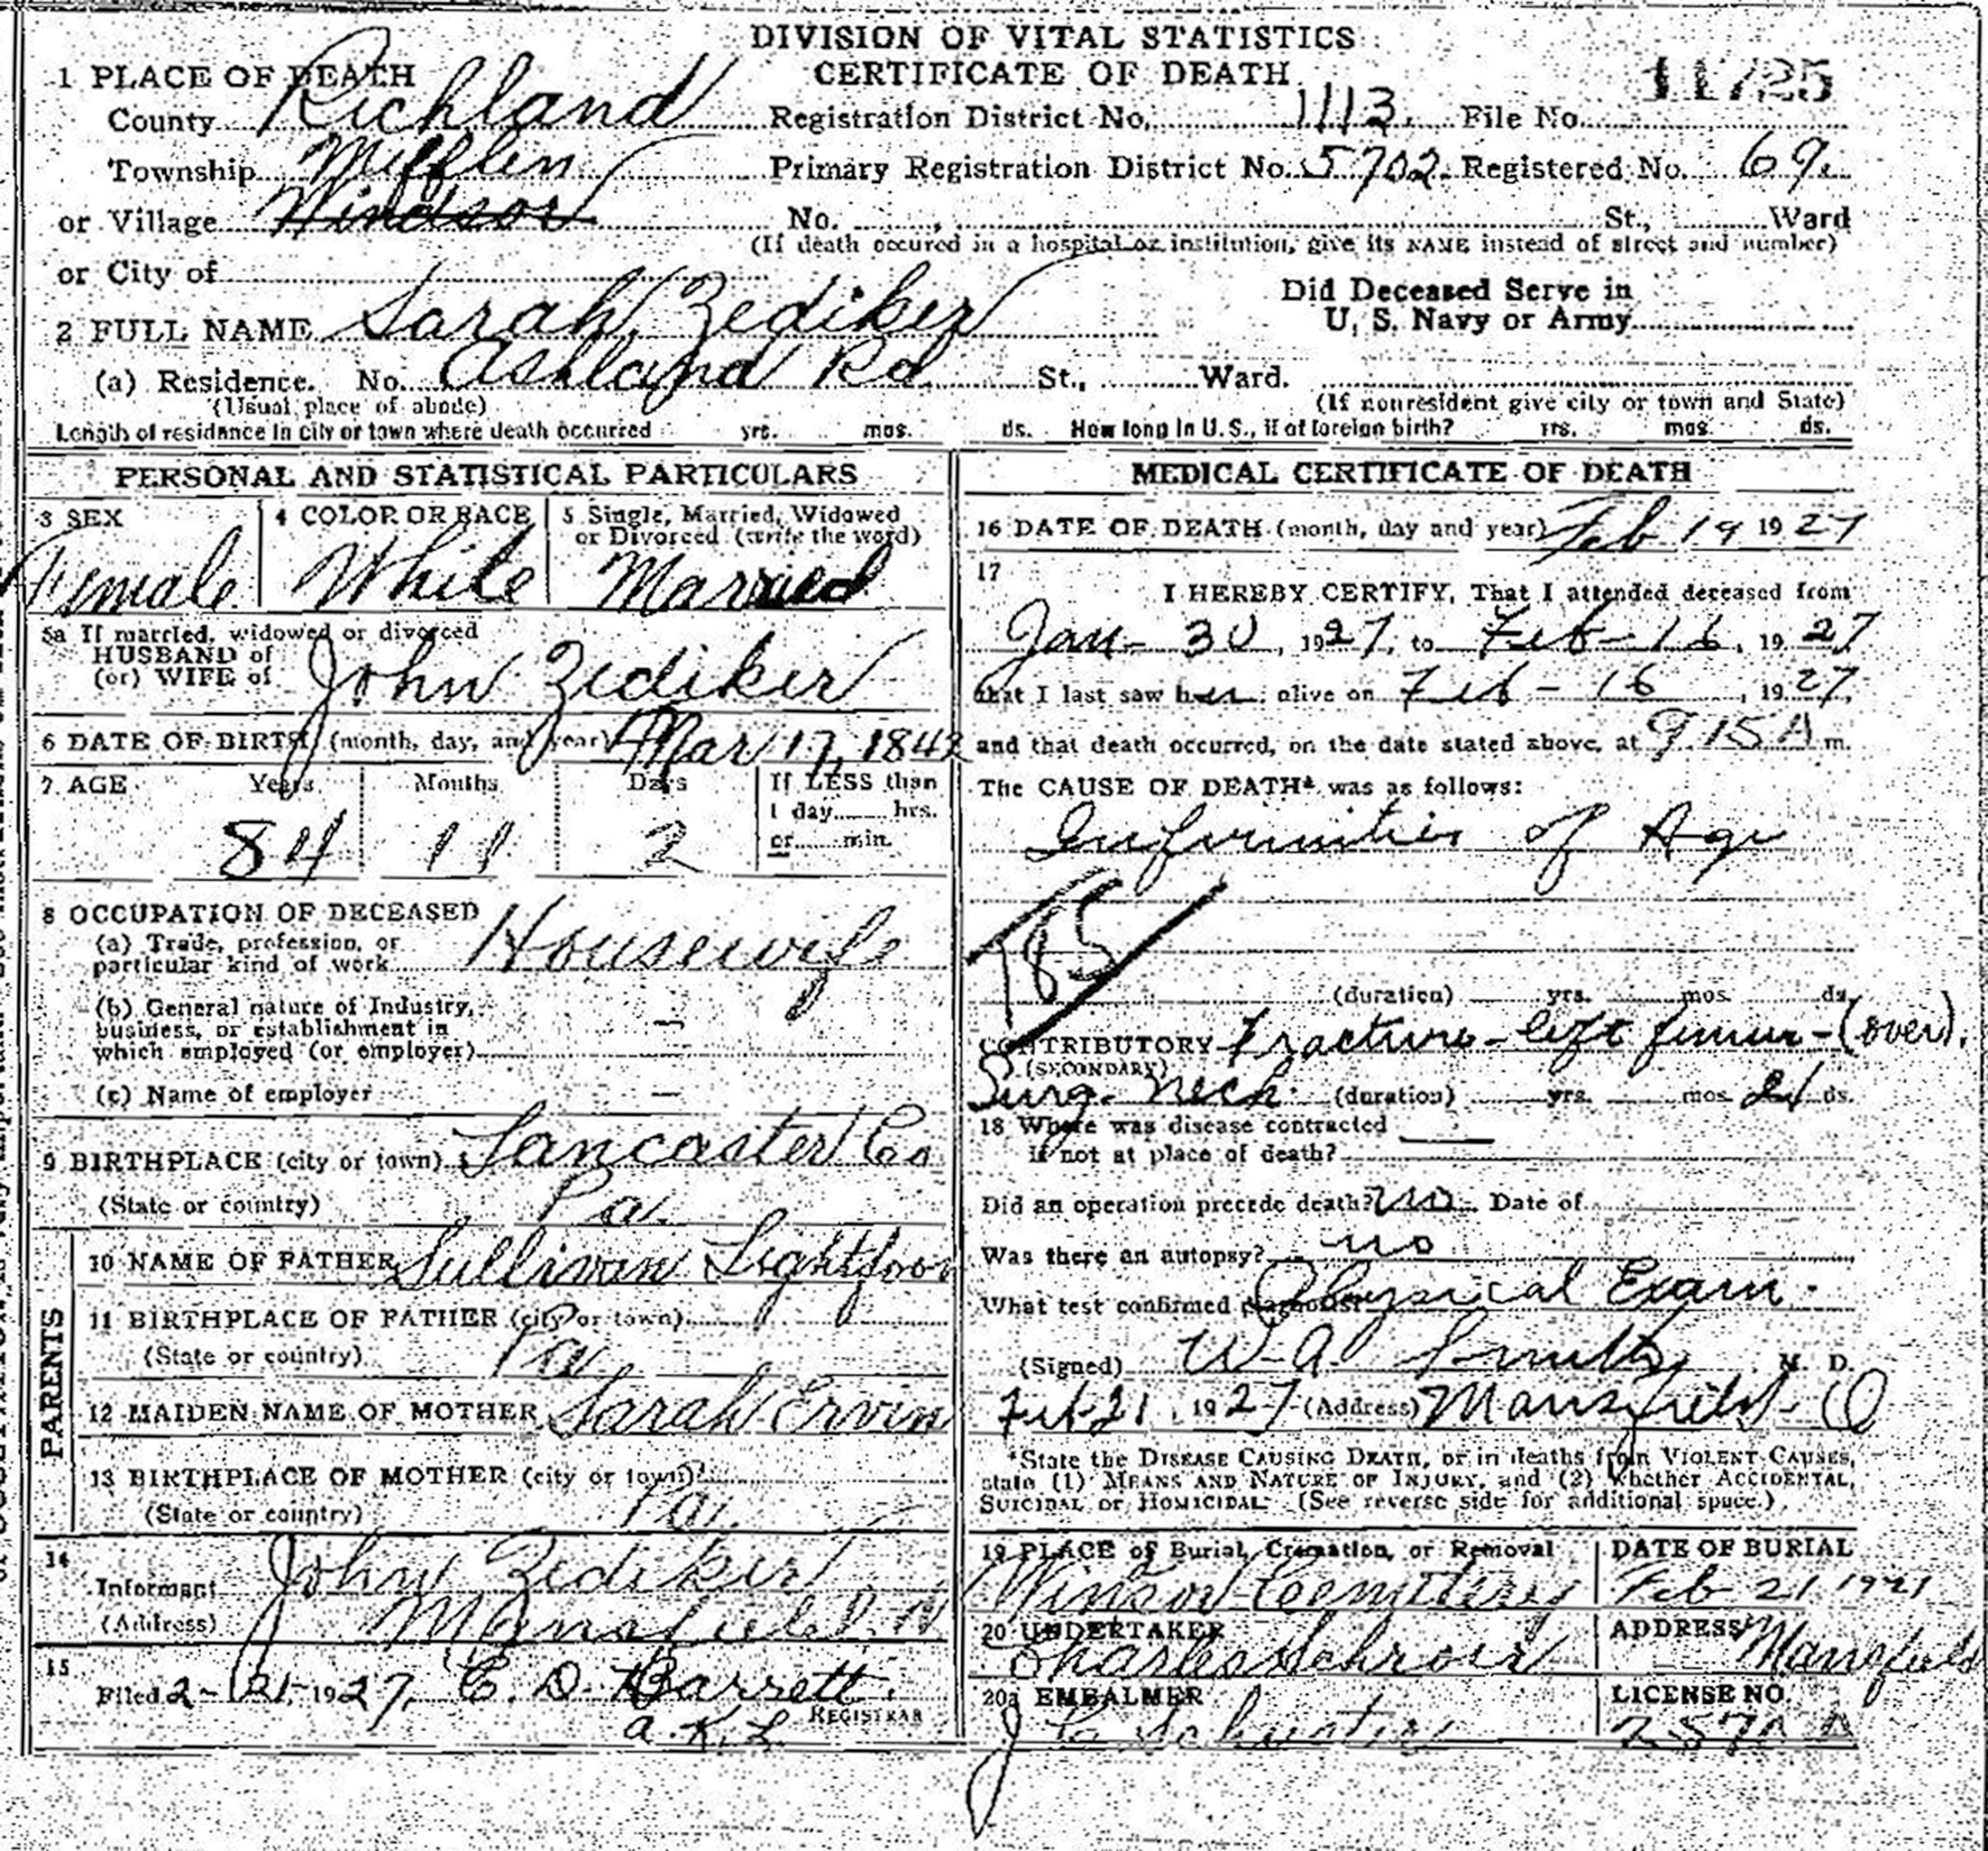 DIVISION OF VITAL STATISTICS
CERTIFICATE OF DEATH
11725
1 PLACE OF DEATH
County Richland Registration District No. 1113 File No.
Township Mifflin Primary Registration District No. 5702 Registered No. 69
or Village Windsor No. , St., Ward
(If death occured in a hospital or institution, give its NAME instead of street and number)
or City of
Did Deceased Serve in
U. S. Navy or Army
2 FULL NAME Sarah Zediker
(a) Residence. No. Ashland Rd St., Ward.
(Usual place of abode) (If nonresident give city or town and State)
Length of residence in city or town where death occurred yrs. mos. ds. How long in U.S., if of foreign birth? yrs. mos. ds.
PERSONAL AND STATISTICAL PARTICULARS
3 SEX 4 COLOR OR RACE 5 Single, Married, Widowed
or Divorced (write the word)
Female White Married
5a If married, widowed or divorced
HUSBAND of
(or) WIFE of John Zediker
6 DATE OF BIRTH (month, day, and year) Mar 17, 1842
7 AGE Years Months Days If LESS than
1 day hrs.
or min.
84 11 2
8 OCCUPATION OF DECEASED
(a) Trade, profession, or
particular kind of work Housewife
(b) General nature of Industry,
business, or establishment in
which employed (or employer) —
(c) Name of employer —
9 BIRTHPLACE (city or town) Lancaster Co
(State or country) Pa.
PARENTS
10 NAME OF FATHER Sullivan Lightfoot
11 BIRTHPLACE OF FATHER (city or town)
(State or country) Pa
12 MAIDEN NAME OF MOTHER Sarah Ervin
13 BIRTHPLACE OF MOTHER (city or town)
(State or country) Pa.
14
Informant John Zediker
(Address) Mansfield
15
Filed 2-21-1927, C. D. Barrett
REGISTRAR
a.K.L.
MEDICAL CERTIFICATE OF DEATH
16 DATE OF DEATH (month, day and year) Feb 19 1927
17
I HEREBY CERTIFY, That I attended deceased from
Jan - 30, 1927, to Feb - 16, 1927
that I last saw her alive on Feb - 16, 1927,
and that death occurred, on the date stated above, at 9 15 A m.
The CAUSE OF DEATH* was as follows:
Infirmities of Age
185
(duration) yrs. mos. ds.
CONTRIBUTORY Fracture - left femur - (over).
(SECONDARY)
Surg. neck. (duration) yrs. mos. 21 ds.
18 Where was disease contracted
If not at place of death?
Did an operation precede death? no. Date of
Was there an autopsy? no
What test confirmed diagnosis? Physical Exam.
(Signed) W. A. Smith, M. D.
Feb 21, 1927 (Address) Mansfield - O
*State the DISEASE CAUSING DEATH, or in deaths from VIOLENT CAUSES,
state (1) MEANS AND NATURE OF INJURY, and (2) whether ACCIDENTAL,
SUICIDAL or HOMICIDAL. (See reverse side for additional space.)
19 PLACE of Burial, Cremation, or Removal DATE OF BURIAL
Winsor Cemetery Feb 21 1927
20 UNDERTAKER ADDRESS
Charles Schroer Mansfield
20a EMBALMER LICENSE NO.
J C Schuster 2570 A